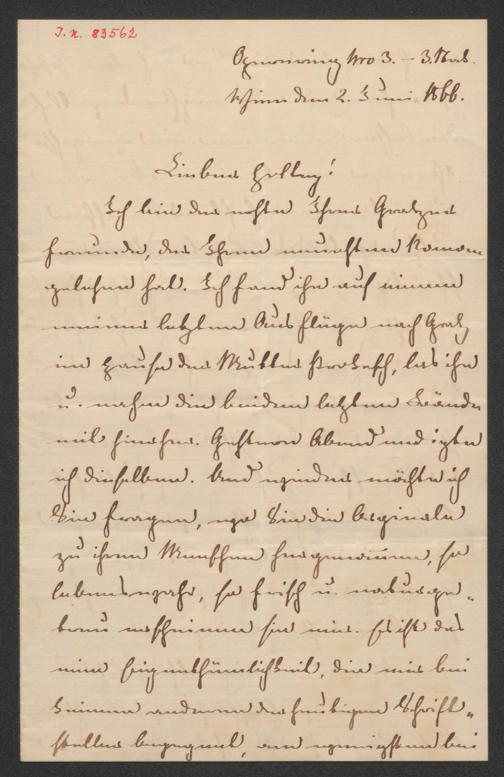 I. N. 83562
Opernring Nro 3. – 3. Stock.
Wien den 2. Juni 1866.
Lieber Holtey!
Ich bin der erste Ihrer Gratzer
Freunde, der Ihren neuesten Roman
gelesen hat. Ich fand ihn auf einem
meiner letzten Ausflüge nach Gratz
im Hause der Mutter Prokesch, las ihn
u. nahm die beiden letzten Bände
mit hieher. Gestern Abend endigte
ich dieselben. Und wieder möchte ich
Sie fragen, wo Sie die Originale
zu ihren Menschen hergenommen, so
lebenswahr, so frisch u. naturge-
treu erscheinen sie mir. Es ist das
eine Eigenthümlichkeit, die mir bei
keinem anderen der heutigen Schrift-
steller begegnet, am wenigsten bei